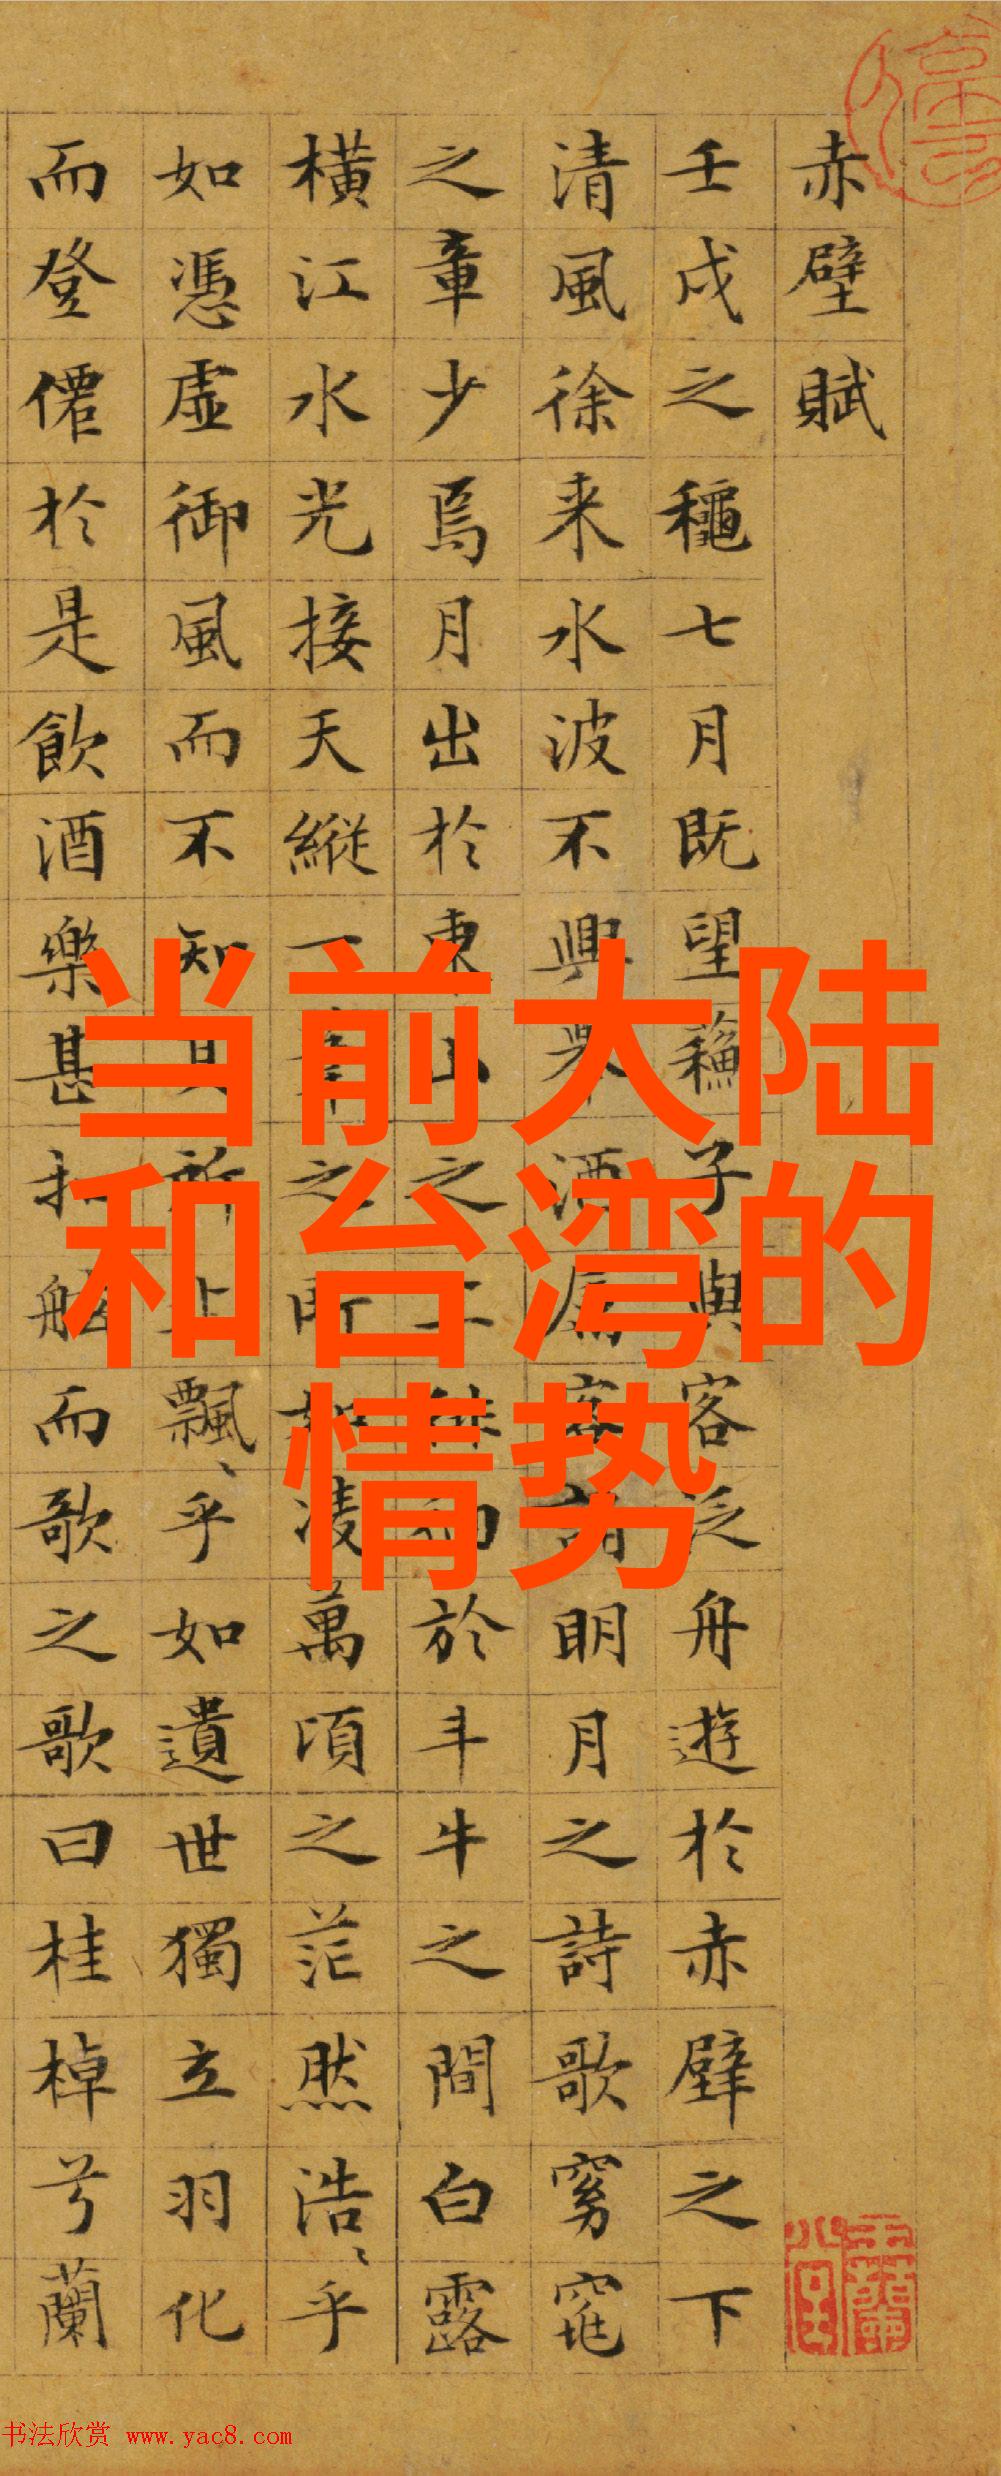 赤壁賦
壬戌之龝七月既望穌子與客泛舟遊於赤壁之下
清風徐来水波不興舉酒屬客誦明月之詩歌窈窕
之章少焉月出於東山之上徘徊於斗牛之間白露
橫江水光接天縱一葦之所如凌萬頃之茫然浩〻乎
如憑虛御風而不知其所止飄〻乎如遺世獨立羽化
而登僊於是飲酒樂甚扣舷而歌之歌曰桂棹兮蘭
当前大陆
和台湾的
情势
书法欣赏 www.yac8.com